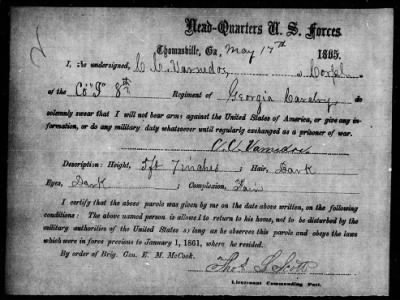 Head-Quarters U. S. Forces
Thomasville, Ga, May 17th 1865.
I, the undersigned, C. C. Varnedoe, a Corpl.
of the Co "I" 8th Regiment of Georgia Cavalry, do
solemnly swear that I will not bear arms against the United States of America, or give any in-
formation, or do any military duty whatsoever until regularly exchanged as a prisoner of war.
C. C. Varnedoe
Description: Height, 5 ft 7 inches; Hair, Dark
Eyes, Dark; Complexion, Fair
I certify that the above parole was given by me on the date above written, on the following
conditions: The above named person is allowed to return to his home, not to be disturbed by the
military authorities of the United States so long as he observes this parole and obeys the laws
which were in force previous to January 1, 1861, where he resided.
By order of Brig. Gen. E. M. McCook.
Thos
Lieutenant Commanding Post.